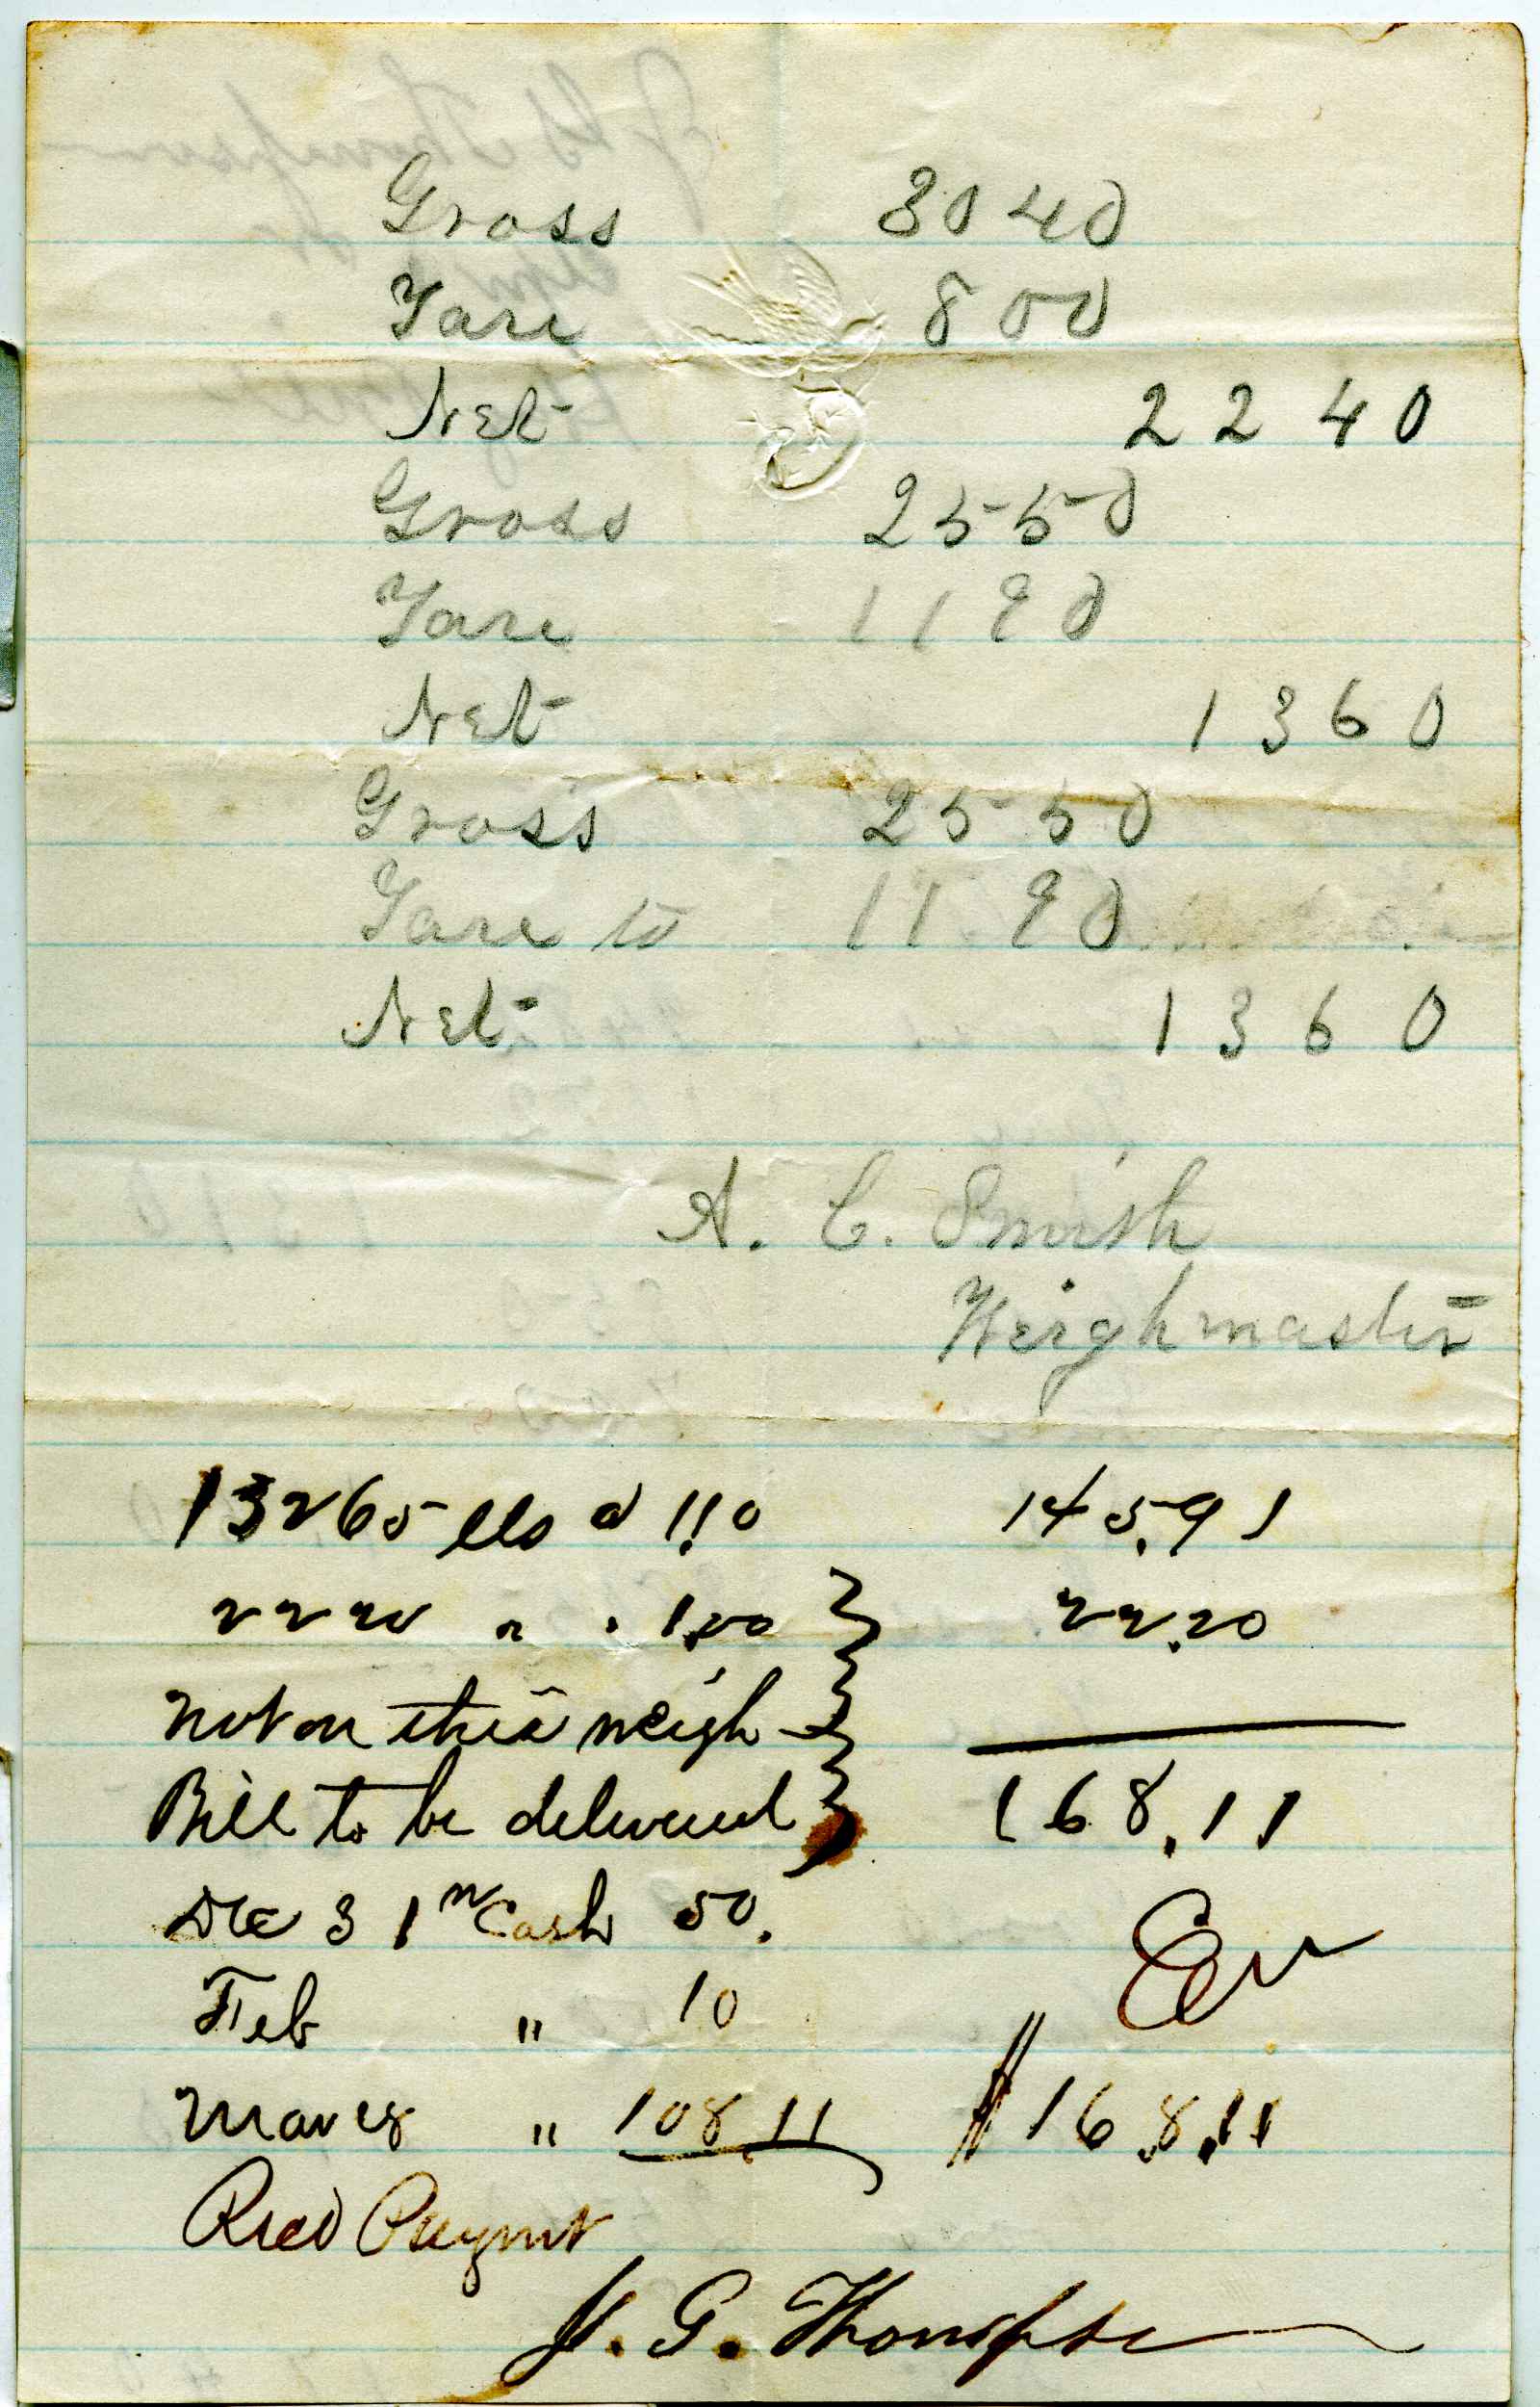 Gross 3040
Tare 800
Net 2240
Gross 2550
Tare 1190
Net 1360
Gross 2550
Tare to 1190
Net 1360
A. C. Smith
Weighmaster
13265 lbs @ 1.10 145.91
2220 " " 1.00 22.20
not on this weigh
Bill to be delivered 168.11
Dec 31 Cash 50.
Feb " 10
" 108.11 $168.11
Recd Paymt
J. G. Thompson